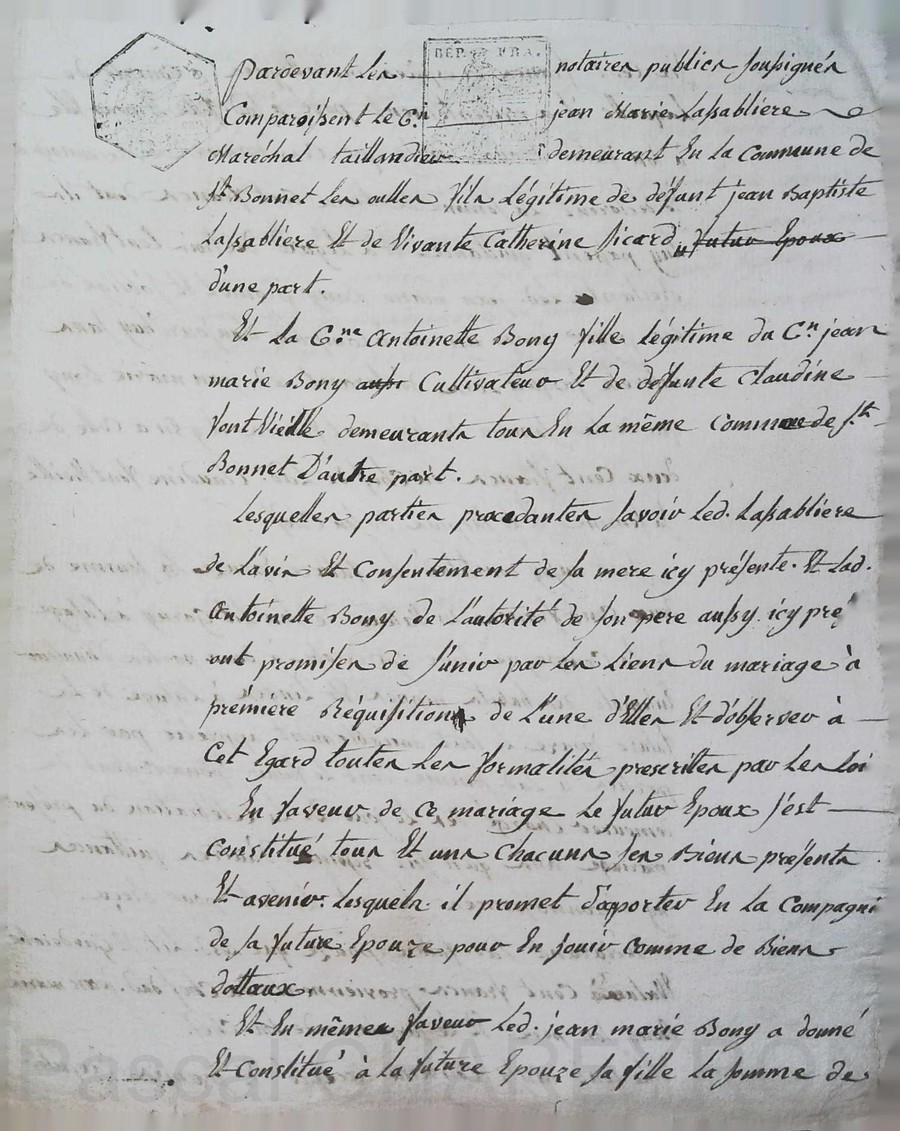 DEP. FRA.
Pardevant Les notaires publics soussignés
Comparoissent le C.en jean Marie Lassabliere
Maréchal taillandier demeurant En La Commune de
St. Bonnet Les oulles fils Légitime de défunt jean Baptiste
Lassabliere Et de Vivante Catherine Sicard, futur Epoux
d'une part.
Et La C.ne Antoinette Bony fille Légitime du C.n jean
marie Bony aussi Cultivateur Et de défunte Claudine
font Vieille demeurants tous En La même Commune de St.
Bonnet D'autre part.
Lesquelles parties procedantes savoir Led. Lassabliere
de L'avis Et Consentement de sa mere icy présente. Et Lad.
Antoinette Bony de L'autorité de son pere aussy icy pré
ont promises de s'unir par Les Liens du mariage à
première Réquisition de L'une d'Elles Et d'observer à
Cet Egard toutes Les formalités prescrittes par Les Loi
En faveur de Ce mariage Le futur Epoux s'est
Constitué tous Et uns Chacuns ses Biens présents
Et avenir. Lesquels il promet d'apporter En La Compagni
de sa future Epouze pour En jouir Comme de Biens
dottaux
Et En même faveur Led. jean marie Bony a donné
Et Constitué à La future Epouze sa fille La somme de